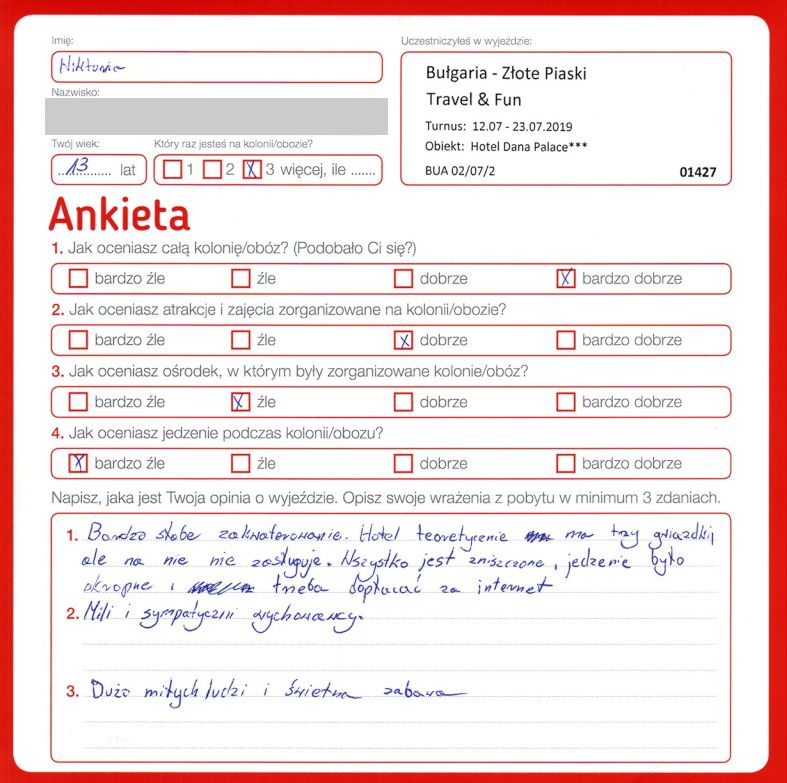 Imię:
Wiktoria
Nazwisko:
Twój wiek:
Który raz jesteś na kolonii/obozie?
13 lat
1 2 X 3 więcej, ile .......
Uczestniczyłeś w wyjeździe:
Bułgaria - Złote Piaski
Travel & Fun
Turnus: 12.07 - 23.07.2019
Obiekt: Hotel Dana Palace***
BUA 02/07/2 01427
Ankieta
1. Jak oceniasz całą kolonię/obóz? (Podobało Ci się?)
bardzo źle źle dobrze X bardzo dobrze
2. Jak oceniasz atrakcje i zajęcia zorganizowane na kolonii/obozie?
bardzo źle źle X dobrze bardzo dobrze
3. Jak oceniasz ośrodek, w którym były zorganizowane kolonie/obóz?
bardzo źle X źle dobrze bardzo dobrze
4. Jak oceniasz jedzenie podczas kolonii/obozu?
X bardzo źle źle dobrze bardzo dobrze
Napisz, jaka jest Twoja opinia o wyjeździe. Opisz swoje wrażenia z pobytu w minimum 3 zdaniach.
1. Bardzo słabe zakwaterowanie. Hotel teoretycznie ma trzy gwiazdki
ale na nie nie zasługuje. Wszystko jest zniszczone, jedzenie było
okropne i trzeba dopłacać za internet
2. Mili i sympatyczni wychowawcy.
3. Dużo miłych ludzi i świetna zabawa